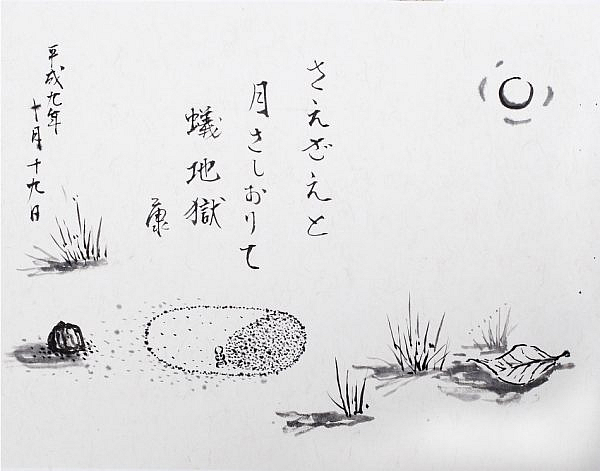 さえざえと
月さしおりて
蟻地獄
平成九年
十月十九日